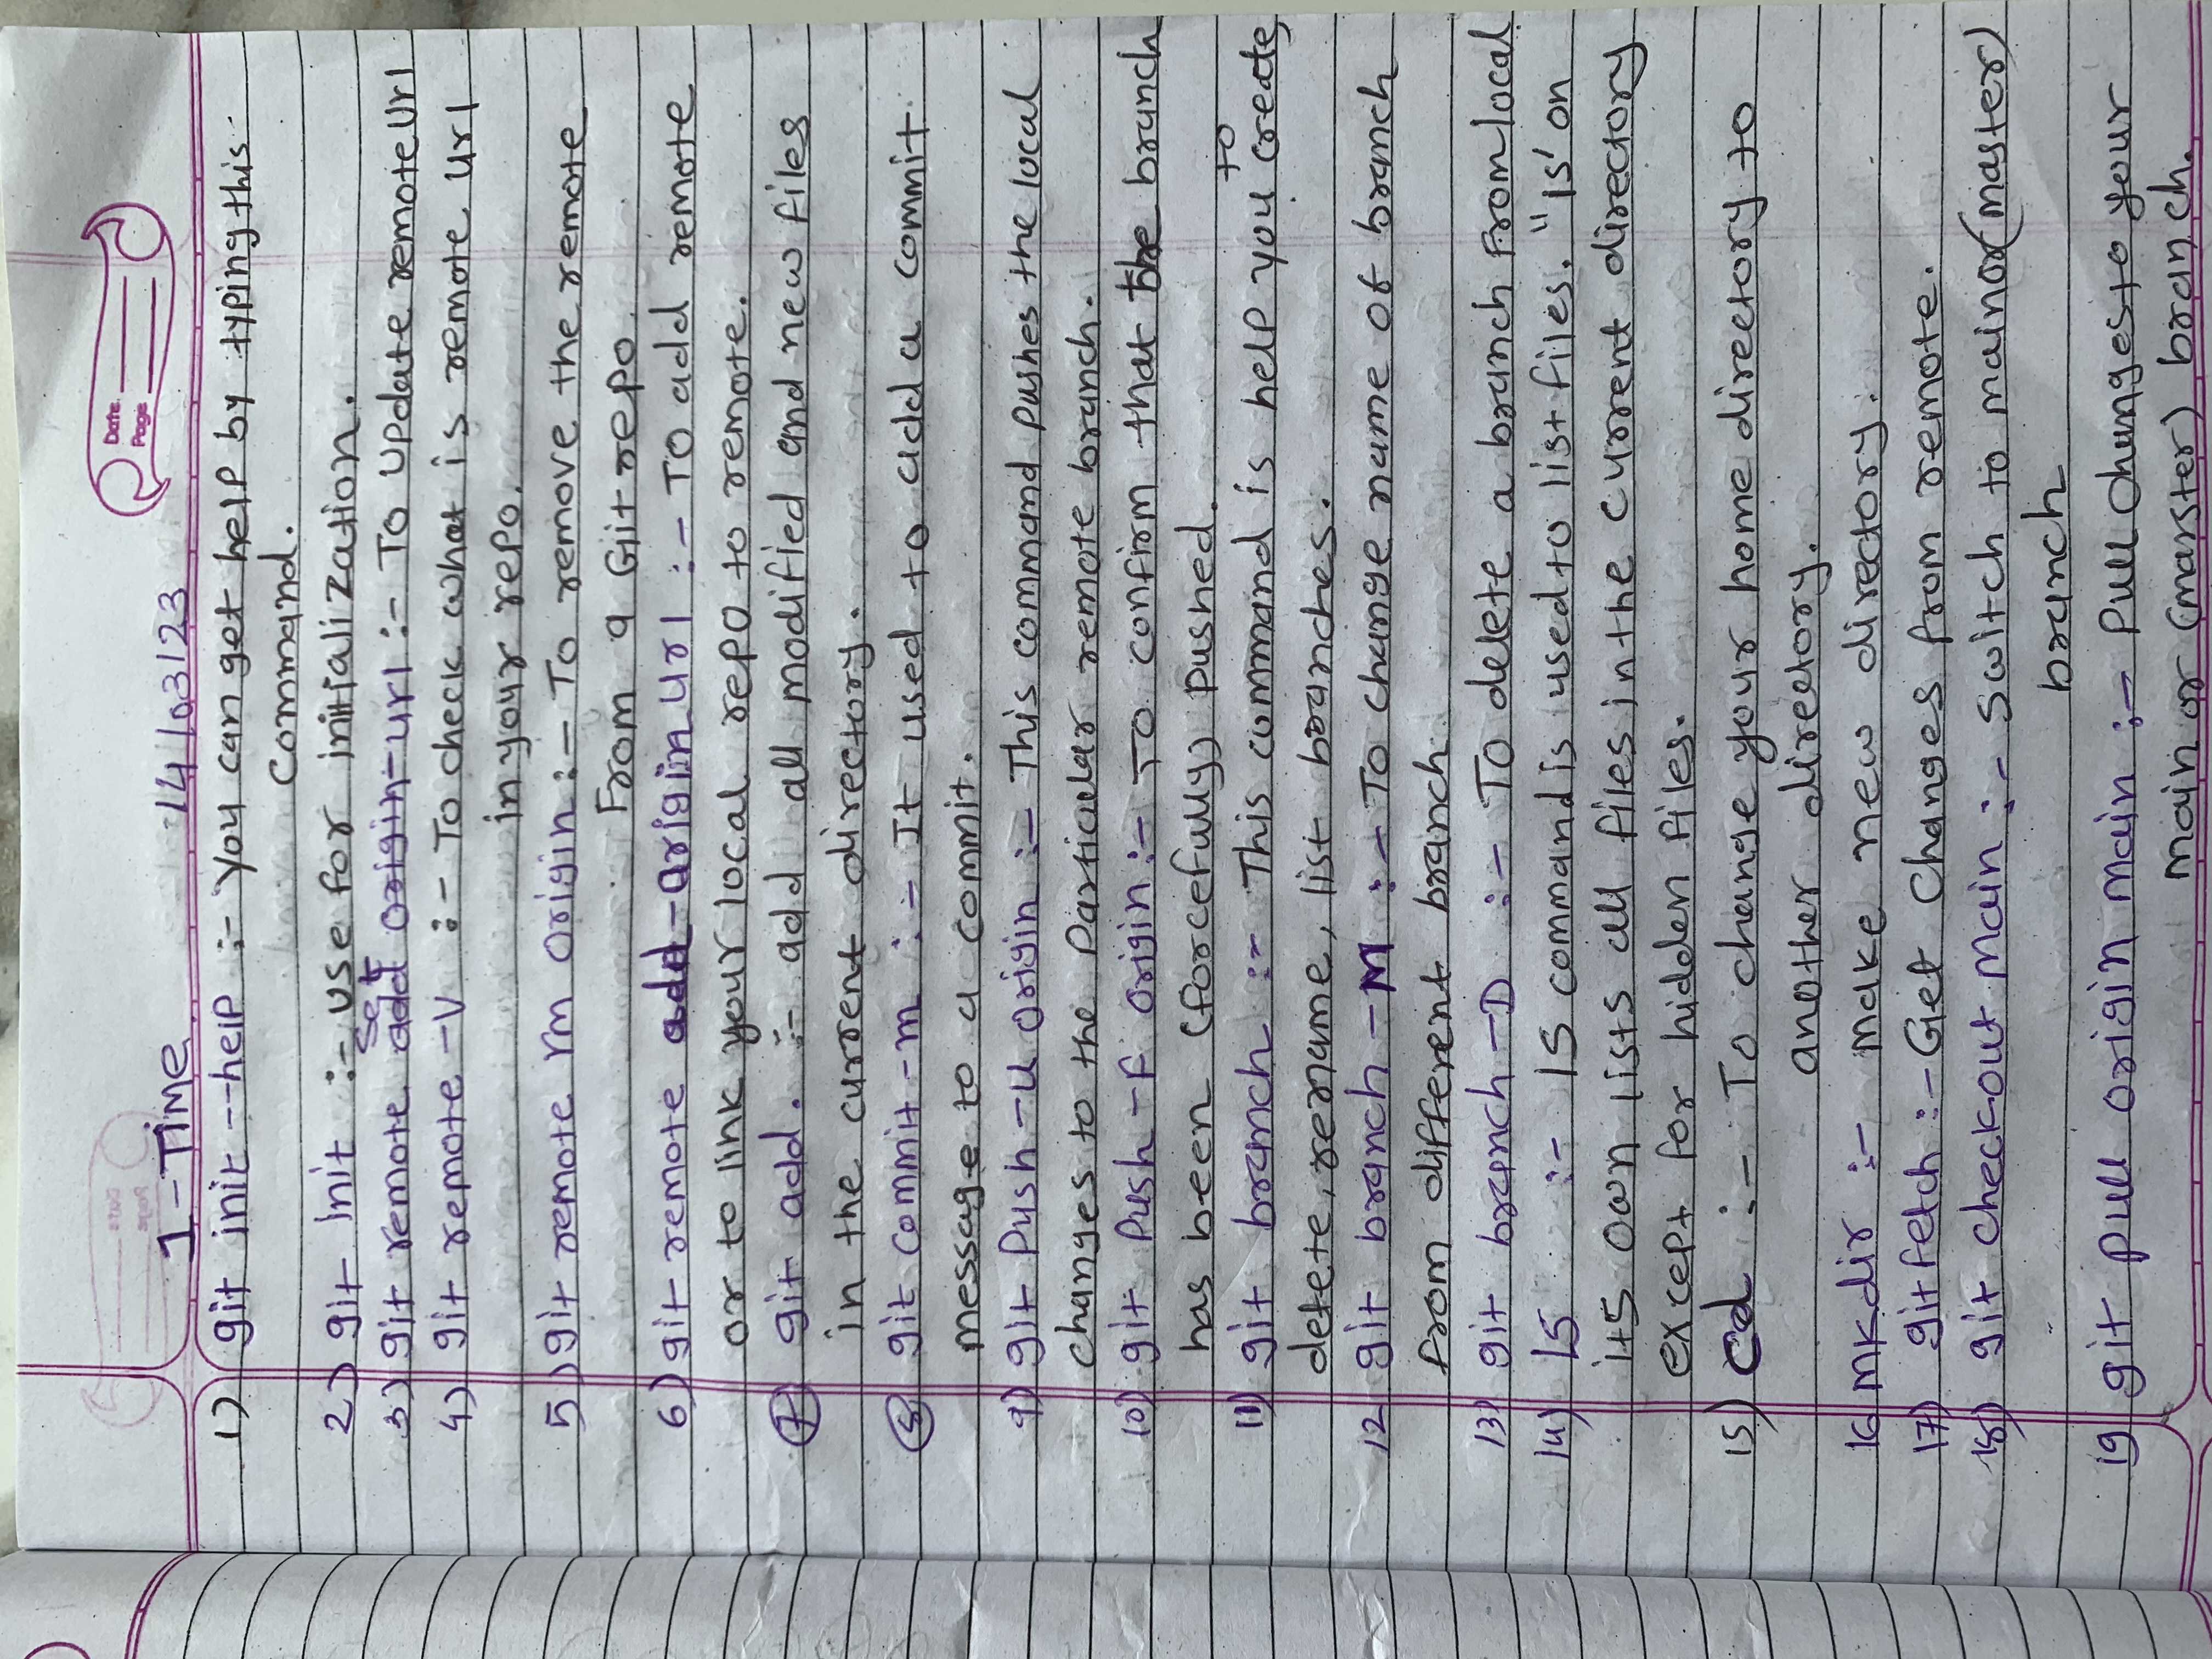 Date
Page
1-Time 14/03/23
1) git init --help :- You can get help by typing this
Command.
2) git Init :- use for initialization.
set
3) git remote add origin-url :- To update remote url
4) git remote -V :- To check what is remote url
in your repo.
5) git remote rm origin :- To remove the remote
From a Git repo.
6) git remote add-origin url :- To add remote
or to link your local repo to remote.
7 git add . :- add all modified and new files
in the current directory.
8 git commit -m :- It used to add a commit
message to a commit.
9) git Push -u origin :- This command pushes the local
changes to the Particular remote branch.
10) git Push -F origin :- To confirm that the branch
has been (forcefully) pushed.
to
11) git branch :- This command is help you create,
delete, rename, list branches.
12 git branch -M :- To change name of branch
from different branch.
13) git branch -D :- To delete a branch From local
14) LS :- lS command is used to list files. "ls' on
its own lists all files in the current directory
except for hidden files.
15) cd :- To change your home directory to
another directory.
16 mkdir :- make new directory.
17) git fetch :- Get Changes from remote.
18) git checkout main :- Switch to main or (master)
branch
19 git pull origin main :- Pull Changes to your
main or (marster) branch.